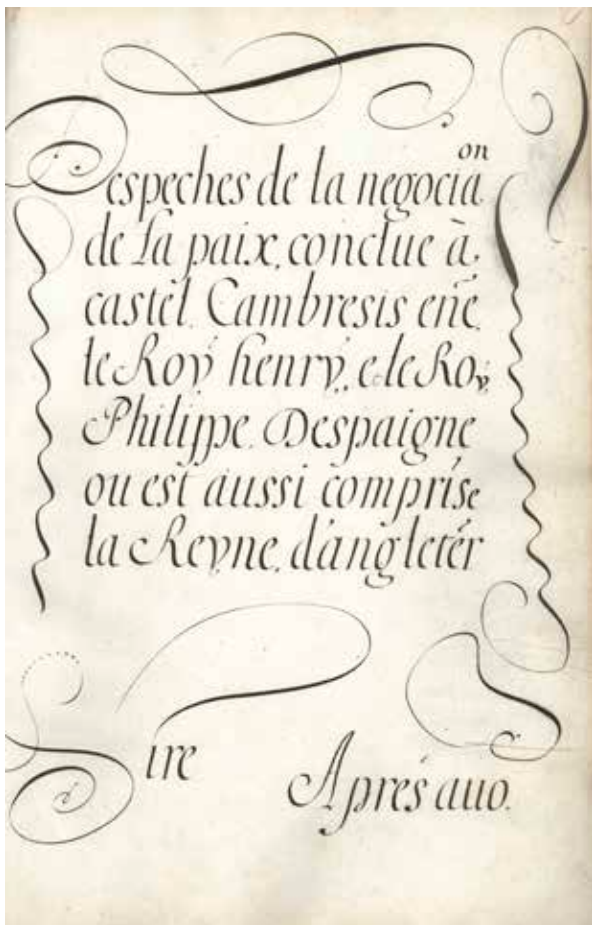 Despeches de la negocia.on
de la paix. conclue à.
castel. Cambresis en̄e.
le Roy henry, et le Roy,
Philippe. Despaigne
ou est aussi comprise
la Reyne. d'angletér
Sire
Aprés auo.